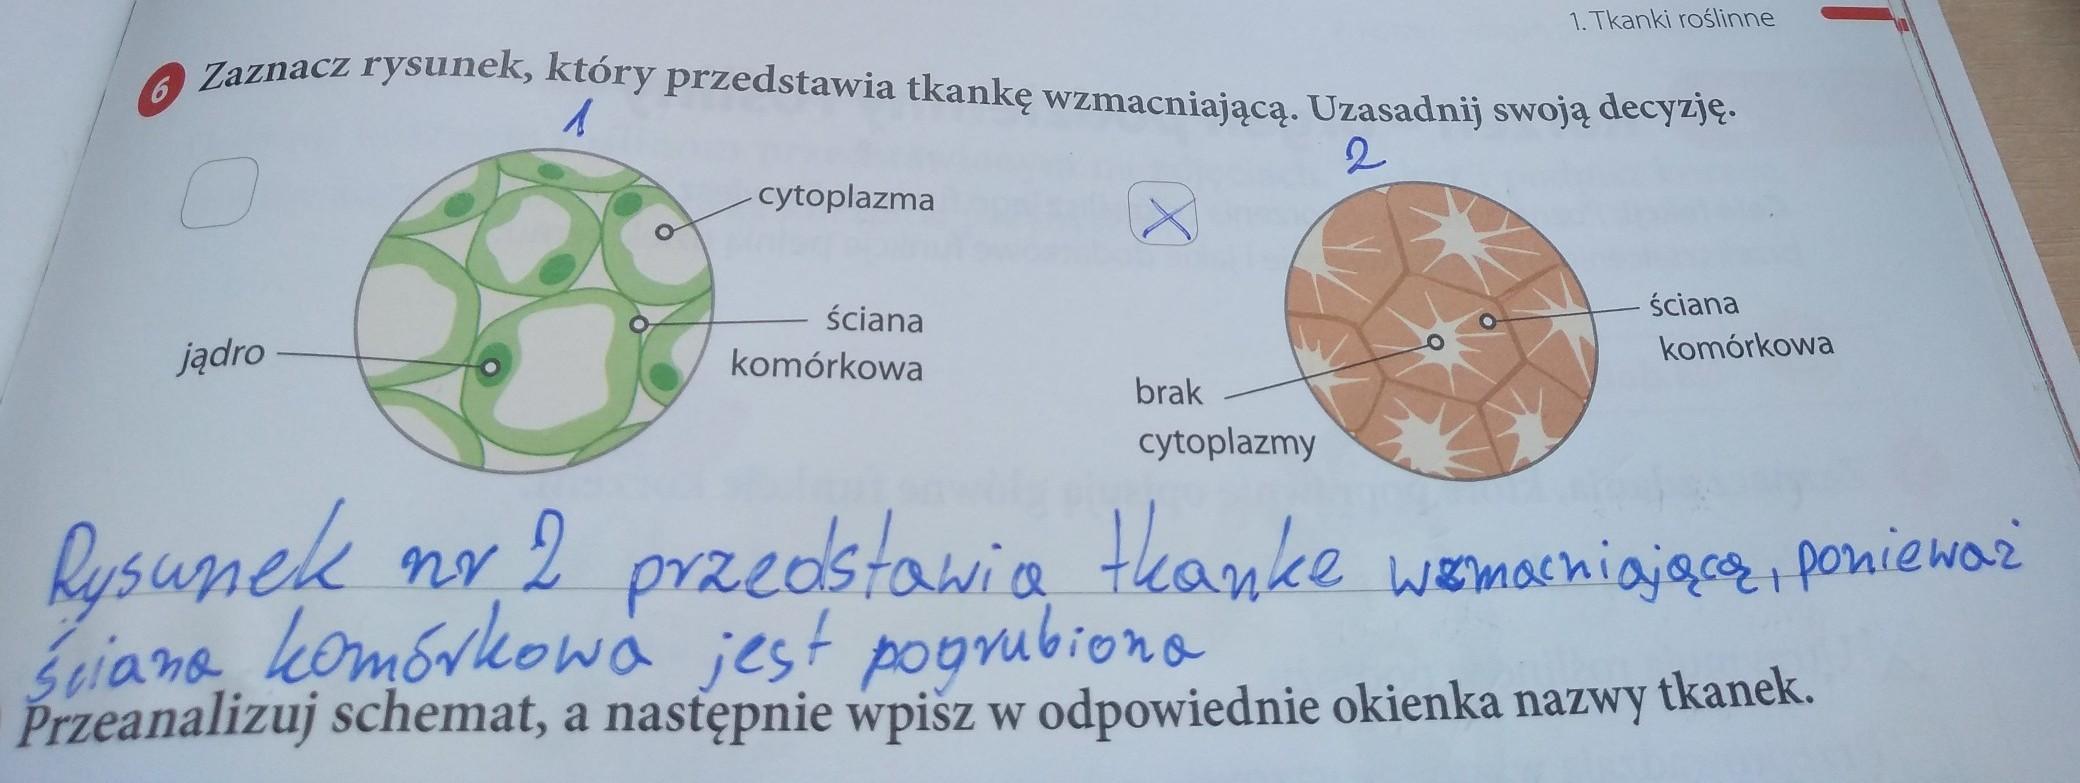 1. Tkanki roślinne
6 Zaznacz rysunek, który przedstawia tkankę wzmacniającą. Uzasadnij swoją decyzję.
1
2
cytoplazma
ściana
komórkowa
jądro
X
ściana
komórkowa
brak
cytoplazmy
Rysunek nr 2 przedstawia tkanke wzmacniającą, ponieważ
ściana komórkowa jest pogrubiona
Przeanalizuj schemat, a następnie wpisz w odpowiednie okienka nazwy tkanek.